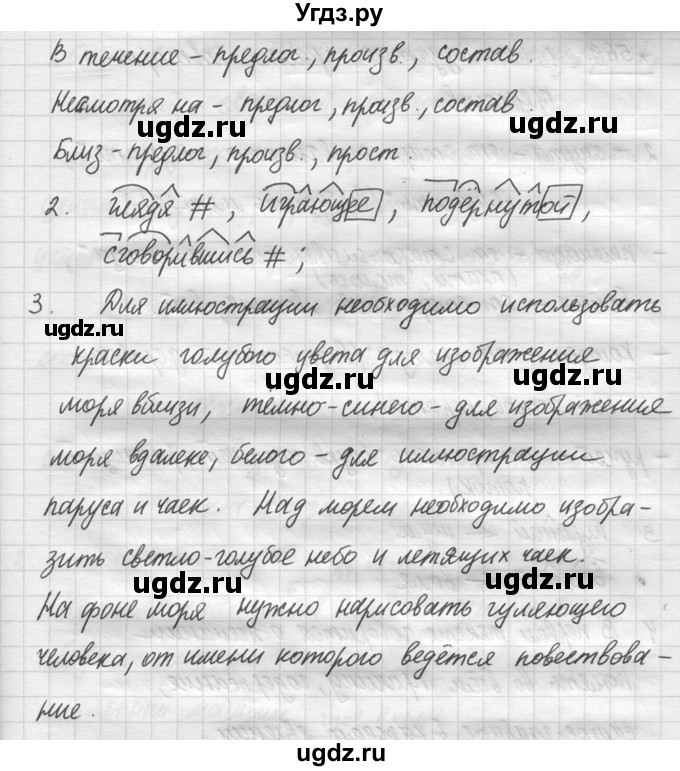 Угдз.ру
В течение – предлог, произв., состав.
Несмотря на – предлог, произв., состав.
ugdz.ru ugdz.ru
Близ – предлог, произв., прост.
2. глядя #, играющее, подёрнутой,
сговорившись #;
3. Для иллюстрации необходимо использовать
ugdz.ru
краски голубого цвета для изображения
ugdz.ru ugdz.ru
моря вблизи, темно-синего – для изображения
моря вдалеке, белого – для иллюстрации
паруса и чаек. Над морем необходимо изобра-
ugdz.ru ugdz.ru
зить светло-голубое небо и летящих чаек.
На фоне моря нужно нарисовать гуляющего
человека, от имени которого ведётся повествова-
ние.
ugdz.ru ugdz.ru
ugdz.ru